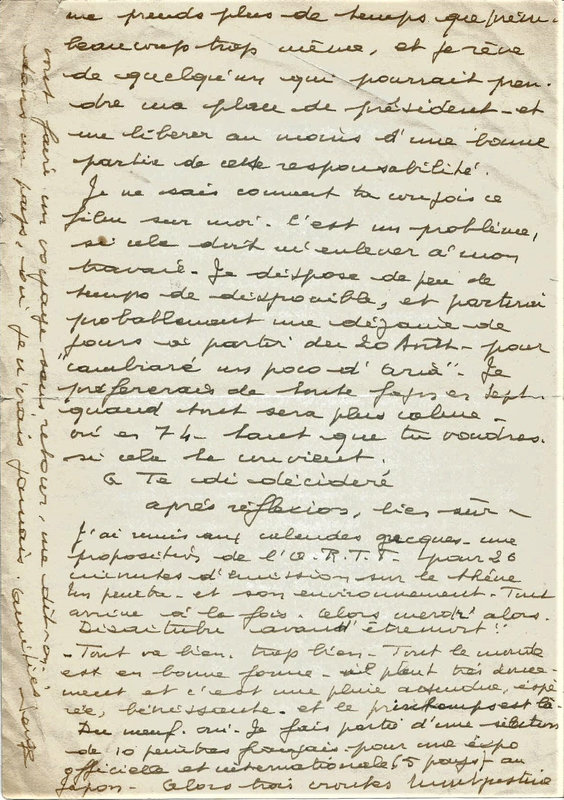 me prends plus de temps que prévu.
beaucoup trop même, et je rêve
de quelqu'un qui pourrait pren-
dre ma place de président - et
me libérer au moins d'une bonne
partie de cette responsabilité.
Je ne sais comment tu conçois ce
film sur moi. C'est un problème,
si cela doit m'enlever à mon
travail - Je dispose de peu de
temps de disponible, et partirai
probablement une dizaine de
jours à partir du 20 Août - pour
"cambiare un poco d'aria" - Je
préférerais de toute façon en Sept.
quand tout sera plus calme -
où en 74 - tant que tu voudras.
si cela te convient.
A Te di décidere
après réflexion, bien sûr -
J'ai remis aux calendes grecques - une
proposition de l'O.R.T.F. pour 26
minutes d'émission sur le thème
Un peintre - et son environnement - Tout
arrive à la fois. Alors merde! alors.
Disait avant d'être mort!!
- Tout va bien. trop bien - Tout le monde
est en bonne forme - il pleut très douce-
ment et c'est une pluie attendue, espé-
rée, bénissante - et le printemps est là -
Du neuf. oui - Je fais partie d'une sélection
de 10 peintres français - pour une expo
officielle et internationale 65 pays - au
Japon - Alors trois croutes
vont faire un voyage sans retour, me dit-on,
dans un pays, où je n'irais jamais. Amitiés
Serge